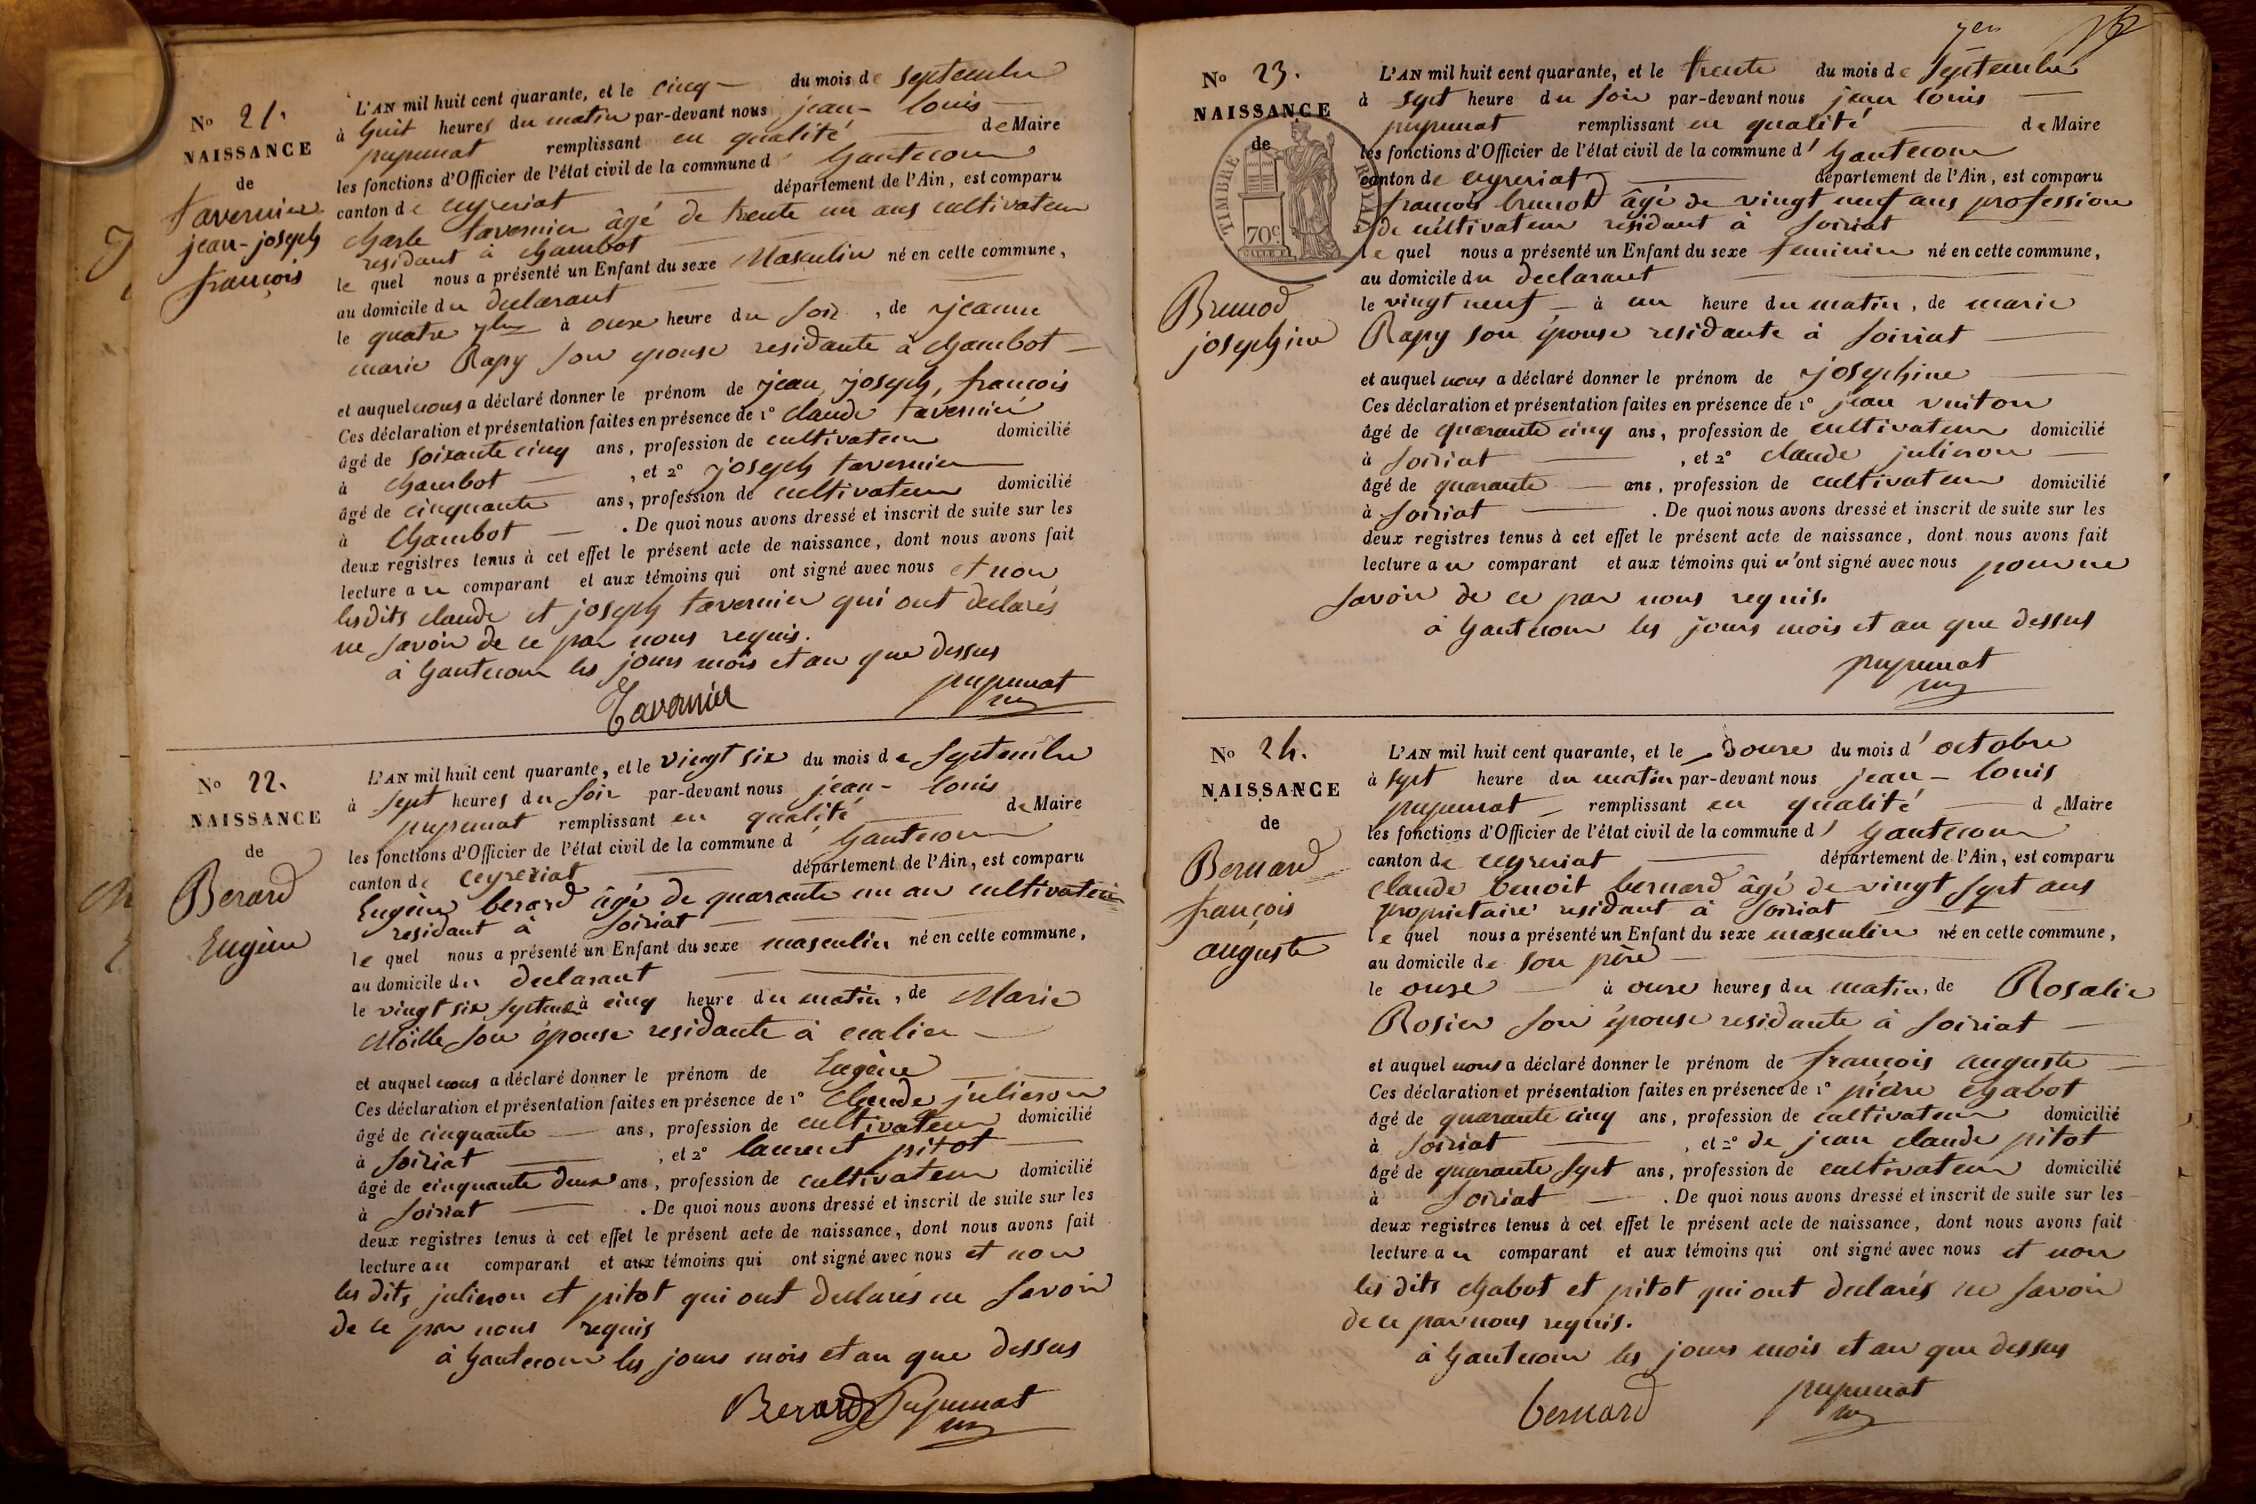 N° 21.
NAISSANCE
de
tavernier
jean-joseph
françois
L'AN mil huit cent quarante, et le cinq du mois de septembre
à huit heures du matin par-devant nous jean-louis
pupunat remplissant en qualité de Maire
les fonctions d'Officier de l'état civil de la commune d' hautecour
canton de ceyzeriat département de l'Ain, est comparu
charle tavernier âgé de trente un ans cultivateur
residant à chambot
le quel nous a présenté un Enfant du sexe Masculin né en cette commune,
au domicile du declarant
le quatre 7bre à onze heure du soir, de jeanne
marie Rapy son epouse residante à chambot
et auquel nous a déclaré donner le prénom de jean, joseph, françois
Ces déclaration et présentation faites en présence de 1° claude tavernier
âgé de soixante cinq ans, profession de cultivateur domicilié
à chambot, et 2° joseph tavernier
âgé de cinquante ans, profession de cultivateur domicilié
à Chambot. De quoi nous avons dressé et inscrit de suite sur les
deux registres tenus à cet effet le présent acte de naissance, dont nous avons fait
lecture au comparant et aux témoins qui ont signé avec nous et non
les dits claude et joseph tavernier qui ont declarés
ne savoir de ce par nous requis.
à hautecour les jours mois et an que dessus
Tavernier pupunat
N° 22.
NAISSANCE
de
Berard
Eugène
L'AN mil huit cent quarante, et le vingt six du mois de Septembre
à sept heures du soir par-devant nous jean-louis
pupunat remplissant en qualité de Maire
les fonctions d'Officier de l'état civil de la commune d' hautecour
canton de ceyzeriat département de l'Ain, est comparu
Eugène berard âgé de quarante un an cultivateur
residant à Soiriat
le quel nous a présenté un Enfant du sexe masculin né en cette commune,
au domicile du declarant
le vingt six septembre à cinq heure du matin, de Marie
Moille son épouse residante à
et auquel nous a déclaré donner le prénom de Eugène
Ces déclaration et présentation faites en présence de 1° Claude julieron
âgé de cinquante ans, profession de cultivateur domicilié
à Soiriat, et 2° laurent pitot
âgé de cinquante deux ans, profession de cultivateur domicilié
à Soiriat. De quoi nous avons dressé et inscrit de suite sur les
deux registres tenus à cet effet le présent acte de naissance, dont nous avons fait
lecture au comparant et aux témoins qui ont signé avec nous et non
les dits julieron et pitot qui ont declarés ne savoir
de ce par nous requis
à hautecour les jours mois et an que dessus
Berard Pupunat
7en
N° 23.
NAISSANCE
de
TIMBRE ROYAL
70c
Brunod
josephine
L'AN mil huit cent quarante, et le trente du mois de Septembre
à sept heure du soir par-devant nous jean louis
pupunat remplissant en qualité de Maire
les fonctions d'Officier de l'état civil de la commune d' hautecour
canton de ceyzeriat département de l'Ain, est comparu
françois brunod âgé de vingt neuf ans profession
de cultivateur residant à soiriat
le quel nous a présenté un Enfant du sexe feminin né en cette commune,
au domicile du declarant
le vingt neuf à un heure du matin, de marie
Rapy son épouse residante à soiriat
et auquel nous a déclaré donner le prénom de josephine
Ces déclaration et présentation faites en présence de 1° jean vuiton
âgé de quarante cinq ans, profession de cultivateur domicilié
à soiriat, et 2° claude julieron
âgé de quarante ans, profession de cultivateur domicilié
à soiriat. De quoi nous avons dressé et inscrit de suite sur les
deux registres tenus à cet effet le présent acte de naissance, dont nous avons fait
lecture au comparant et aux témoins qui n'ont signé avec nous pour ne
savoir de ce par nous requis.
à hautecour les jours mois et an que dessus
pupunat
N° 24.
NAISSANCE
de
Bernard
françois
auguste
L'AN mil huit cent quarante, et le douze du mois d'octobre
à sept heure du matin par-devant nous jean-louis
pupunat remplissant en qualité d Maire
les fonctions d'Officier de l'état civil de la commune d' hautecour
canton de ceyzeriat département de l'Ain, est comparu
claude benoit bernard âgé de vingt sept ans
proprietaire residant à Soiriat
le quel nous a présenté un Enfant du sexe masculin né en cette commune,
au domicile de son père
le onze à onze heures du matin, de Rosalie
Rosier son épouse residante à soiriat
et auquel nous a déclaré donner le prénom de françois auguste
Ces déclaration et présentation faites en présence de 1° pierre chabot
âgé de quarante cinq ans, profession de cultivateur domicilié
à soiriat, et 2° de jean claude pitot
âgé de quarante sept ans, profession de cultivateur domicilié
à soiriat. De quoi nous avons dressé et inscrit de suite sur les
deux registres tenus à cet effet le présent acte de naissance, dont nous avons fait
lecture au comparant et aux témoins qui ont signé avec nous et non
les dits chabot et pitot qui ont declarés ne savoir
de ce par nous requis.
à hautecour les jours mois et an que dessus
bernard pupunat